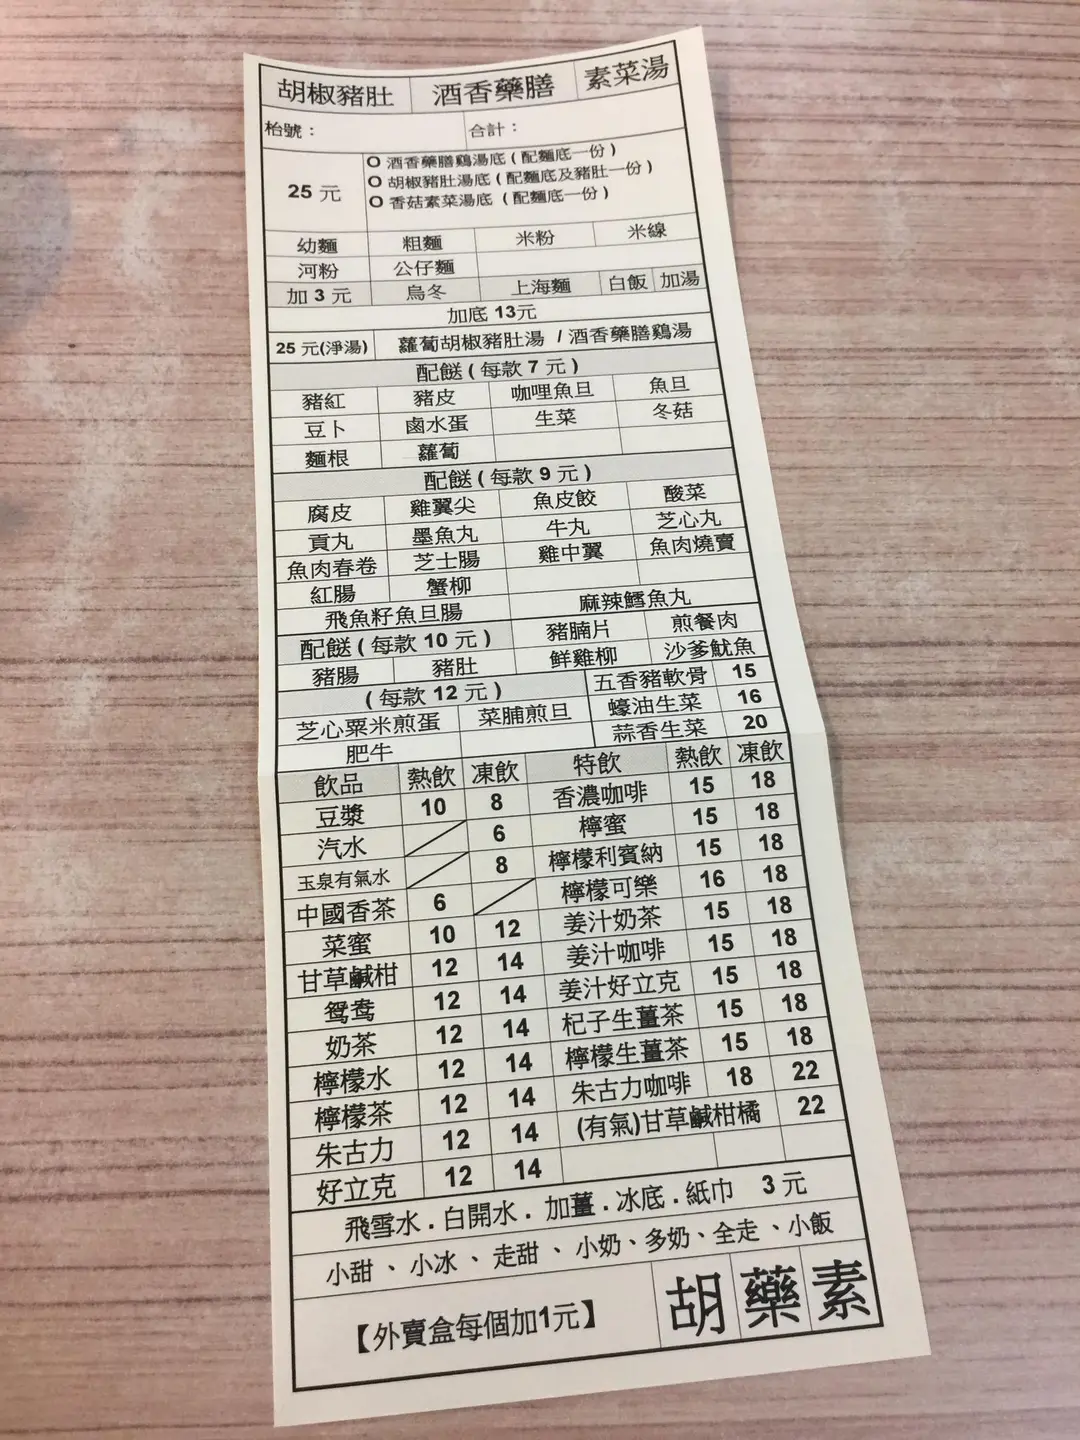 胡椒豬肚 酒香藥膳 素菜湯
枱號： 合計：
25 元
O 酒香藥膳鷄湯底 ( 配麵底一份 )
O 胡椒豬肚湯底 ( 配麵底及豬肚一份 )
O 香菇素菜湯底 ( 配麵底一份 )
幼麵 粗麵 米粉 米線
河粉 公仔麵
加 3 元 烏冬 上海麵 白飯 加湯
加底 13元
25 元(淨湯) 蘿蔔胡椒豬肚湯 / 酒香藥膳鷄湯
配餸 ( 每款 7 元 )
豬紅 豬皮 咖哩魚旦 魚旦
豆卜 鹵水蛋 生菜 冬菇
麵根 蘿蔔
配餸 ( 每款 9 元 )
腐皮 雞翼尖 魚皮餃 酸菜
貢丸 墨魚丸 牛丸 芝心丸
魚肉春卷 芝士腸 雞中翼 魚肉燒賣
紅腸 蟹柳
飛魚籽魚旦腸 麻辣鱈魚丸
配餸 ( 每款 10 元 ) 豬腩片 煎餐肉
豬腸 豬肚 鮮雞柳 沙爹魷魚
( 每款 12 元 ) 五香豬軟骨 15
芝心粟米煎蛋 菜脯煎旦 蠔油生菜 16
肥牛 蒜香生菜 20
飲品 熱飲 凍飲 特飲 熱飲 凍飲
豆漿 10 8 香濃咖啡 15 18
汽水 6 檸蜜 15 18
玉泉有氣水 8 檸檬利賓納 15 18
中國香茶 6 檸檬可樂 16 18
菜蜜 10 12 姜汁奶茶 15 18
甘草鹹柑 12 14 姜汁咖啡 15 18
鴛鴦 12 14 姜汁好立克 15 18
奶茶 12 14 杞子生薑茶 15 18
檸檬水 12 14 檸檬生薑茶 15 18
檸檬茶 12 14 朱古力咖啡 18 22
朱古力 12 14 (有氣)甘草鹹柑橘 22
好立克 12 14
飛雪水 . 白開水 . 加薑 . 冰底 . 紙巾 3 元
小甜 、 小冰 、 走甜 、 小奶、多奶、全走 、小飯
【外賣盒每個加1元】 胡 藥 素